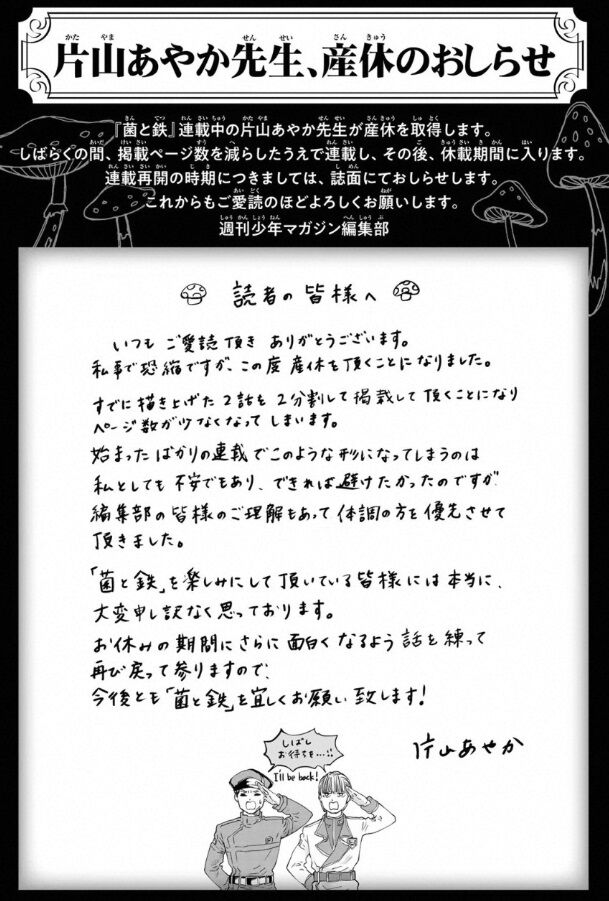 片山あやか先生、産休のおしらせ
『菌と鉄』連載中の片山あやか先生が産休を取得します。
しばらくの間、掲載ページ数を減らしたうえで連載し、その後、休載期間に入ります。
連載再開の時期につきましては、誌面にておしらせします。
これからもご愛読のほどよろしくお願いします。
週刊少年マガジン編集部
読者の皆様へ
いつも ご愛読頂き ありがとうございます。
私事で恐縮ですが、この度 産休を頂くことになりました。
すでに描き上げた 2話を 2分割して掲載して頂くことになり
ページ数が少なくなって しまいます。
始まったばかりの連載でこのような形になってしまうのは
私としても 不安でもあり、できれば避けたかったのですが
編集部の皆様のご理解もあって 体調の方を優先させて
頂きました。
「菌と鉄」を楽しみにして頂いている皆様には本当に、
大変申し訳なく思っております。
お休みの期間にさらに 面白くなるよう 話を練って
再び戻って参りますので、
今後とも「菌と鉄」を宜しくお願い致します！
片山あやか
しばし
お待ちを…!!
I'll be back!